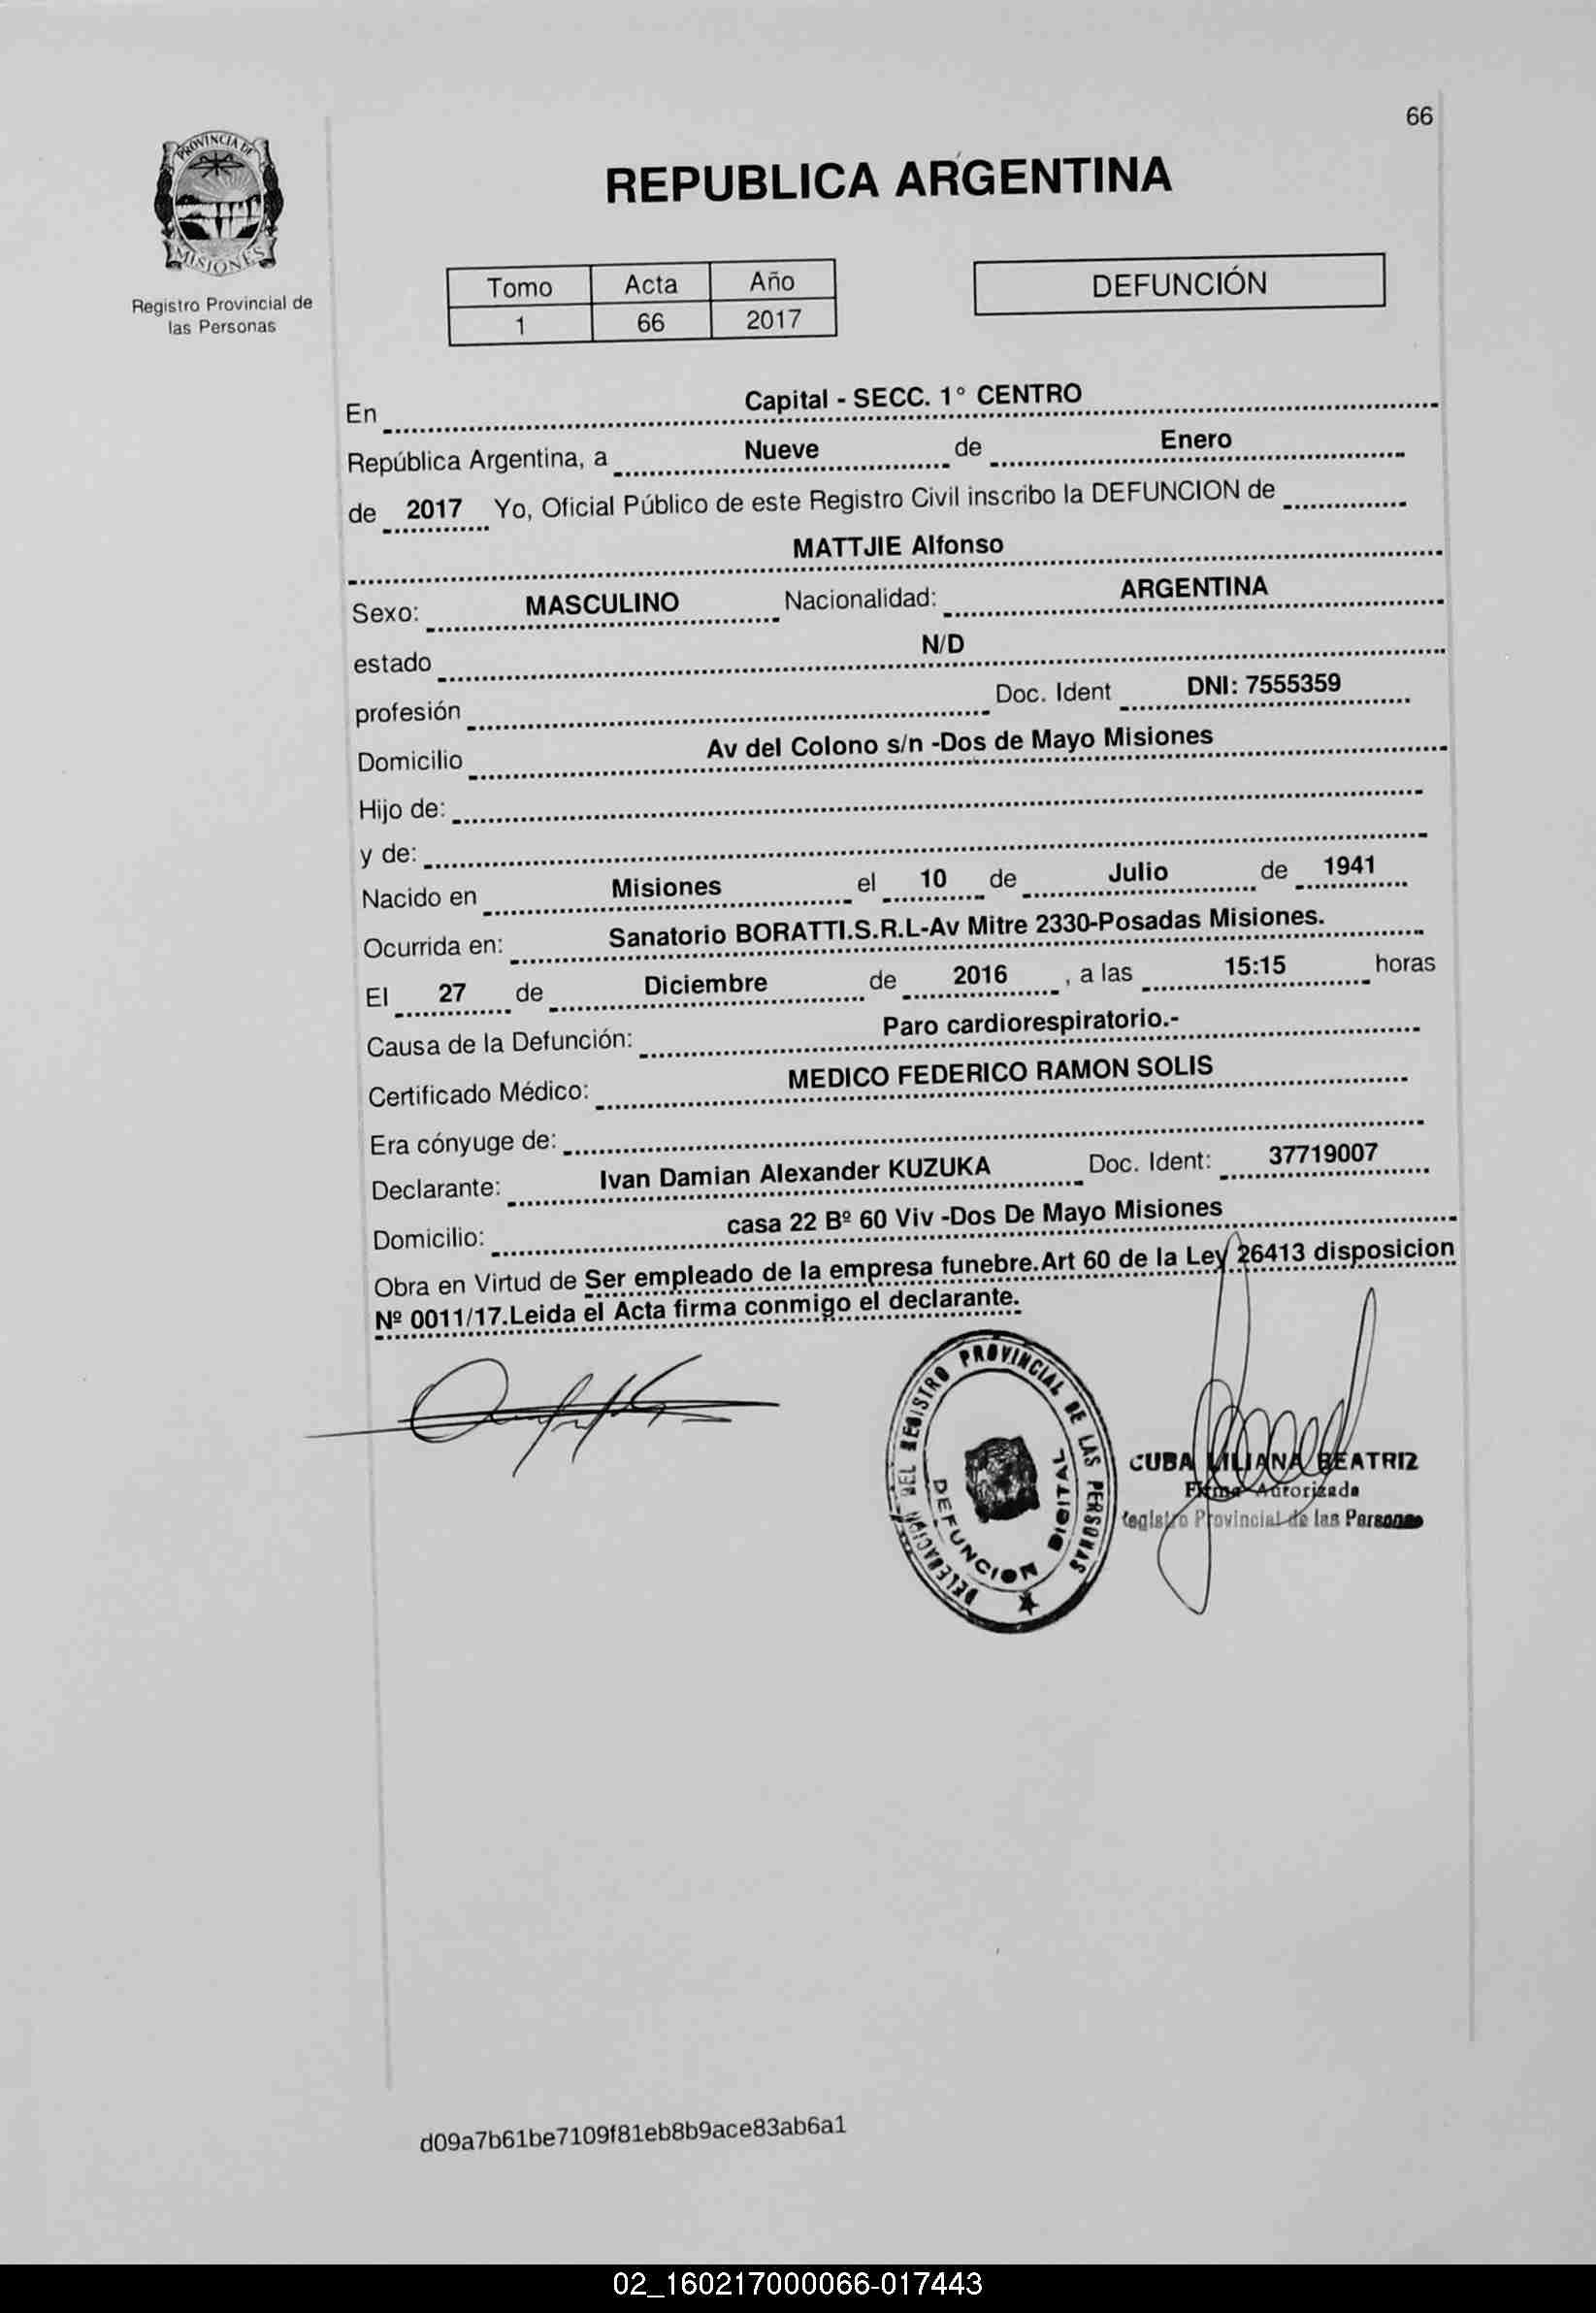 66
PROVINCIA DE
MISIONES
Registro Provincial de
las Personas
REPUBLICA ARGENTINA
Tomo Acta Año
1 66 2017
DEFUNCIÓN
En Capital - SECC. 1° CENTRO
República Argentina, a Nueve de Enero
de 2017 Yo, Oficial Público de este Registro Civil inscribo la DEFUNCION de
MATTJIE Alfonso
Sexo: MASCULINO Nacionalidad: ARGENTINA
estado N/D
profesión Doc. Ident DNI: 7555359
Domicilio Av del Colono s/n -Dos de Mayo Misiones
Hijo de:
y de:
Nacido en Misiones el 10 de Julio de 1941
Ocurrida en: Sanatorio BORATTI.S.R.L-Av Mitre 2330-Posadas Misiones.
El 27 de Diciembre de 2016 , a las 15:15 horas
Causa de la Defunción: Paro cardiorespiratorio.-
Certificado Médico: MEDICO FEDERICO RAMON SOLIS
Era cónyuge de:
Declarante: Ivan Damian Alexander KUZUKA Doc. Ident: 37719007
Domicilio: casa 22 Bº 60 Viv -Dos De Mayo Misiones
Obra en Virtud de Ser empleado de la empresa funebre.Art 60 de la Ley 26413 disposicion
Nº 0011/17.Leida el Acta firma conmigo el declarante.
DELEGACION DEL REGISTRO PROVINCIAL DE LAS PERSONAS
DEFUNCION DIGITAL
CUBA LILIANA BEATRIZ
Firma Autorizada
Registro Provincial de las Personas
d09a7b61be7109f81eb8b9ace83ab6a1
02_160217000066-017443